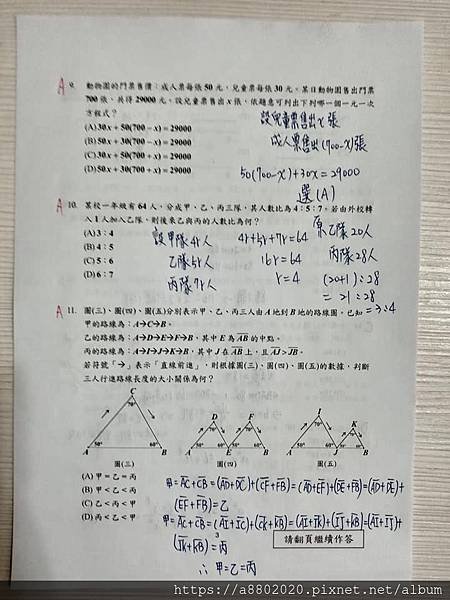 A 9. 動物園的門票售價:成人票每張50元,兒童票每張30元。某日動物園售出門票
700張,共得29000元。設兒童票售出x張,依題意可列出下列哪一個一元一次
方程式?
(A) 30x+50(700-x)=29000
(B) 50x+30(700-x)=29000
(C) 30x+50(700+x)=29000
(D) 50x+30(700+x)=29000
設兒童票售出x張
成人票售出(700-x)張
50(700-x)+30x=29000
選(A)
A 10. 某校一年級有64人,分成甲、乙、丙三隊,其人數比為4:5:7。若由外校轉
入1人加入乙隊,則後來乙與丙的人數比為何?
(A) 3:4
(B) 4:5
(C) 5:6
(D) 6:7
設甲隊4r人
乙隊5r人
丙隊7r人
4r+5r+7r=64
16r=64
r=4
原乙隊20人
丙隊28人
(20+1):28
=21:28
=3:4
A 11. 圖(三)、圖(四)、圖(五)分別表示甲、乙、丙三人由A地到B地的路線圖。已知
甲的路線為:A→C→B。
乙的路線為:A→D→E→F→B,其中E為AB的中點。
丙的路線為:A→I→J→K→B,其中J在AB上,且AJ>JB。
若符號「→」表示「直線前進」,則根據圖(三)、圖(四)、圖(五)的數據,判斷
三人行進路線長度的大小關係為何?
C
70°
50° 60°
A B
圖(三)
D F
70° 70°
50° 60° 50° 60°
A E B
圖(四)
I
70°
K
70°
50° 60° 50° 60°
A J B
圖(五)
(A) 甲=乙=丙
(B) 甲<乙<丙
(C) 乙<丙<甲
(D) 丙<乙<甲
甲=AC+CB=(AD+DC)+(CF+FB)=(AD+EF)+(DE+FB)=(AD+DE)+
(EF+FB)=乙
甲=AC+CB=(AI+IC)+(CK+KB)=(AI+JK)+(IJ+KB)=(AI+IJ)+
(JK+KB)=丙
∴甲=乙=丙
3
請翻頁繼續作答
https://a8802020.pixnet.net/album